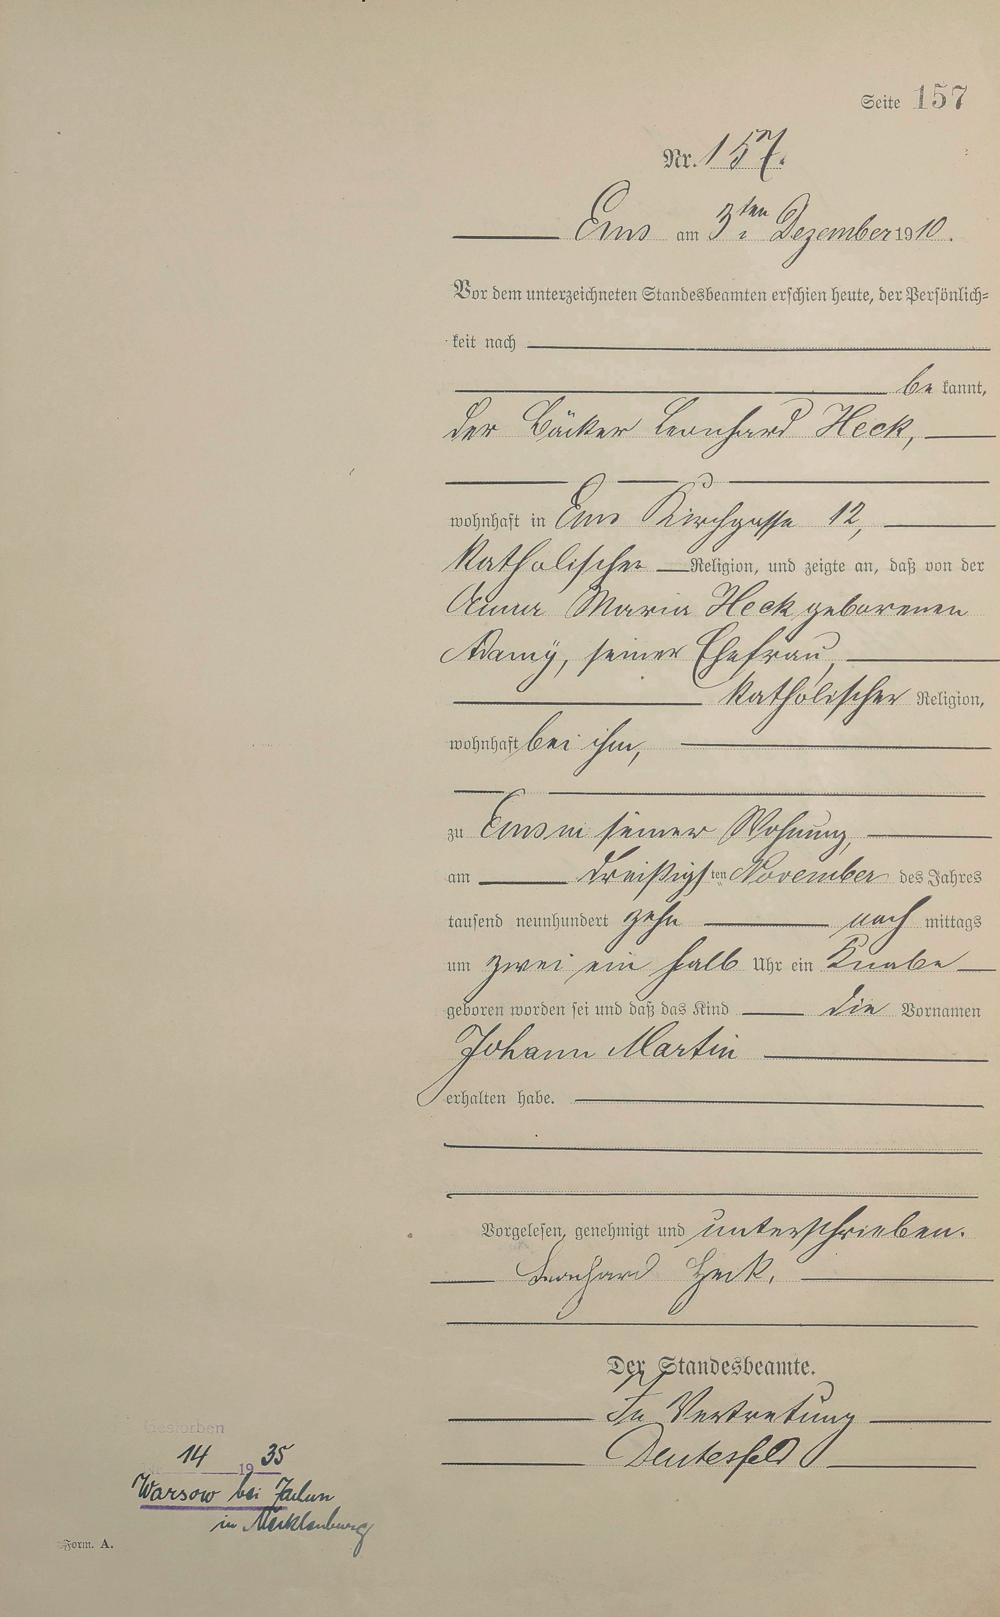 Seite 157
Nr. 157.
Ems am 3ten Dezember 1910.
Vor dem unterzeichneten Standesbeamten erschien heute, der Persönlich-
keit nach
be kannt,
der Bäcker Leonhard Heck,
wohnhaft in Ems Kirchgasse 12,
katholischer Religion, und zeigte an, daß von der
Anna Maria Heck geborenen
Adamÿ, seiner Ehefrau,
katholischer Religion,
wohnhaft bei ihm,
zu Ems in seiner Wohnung,
am dreißigsten November des Jahres
tausend neunhundert zehn nach mittags
um zwei ein halb Uhr ein Knabe
geboren worden sei und daß das Kind die Vornamen
Johann Martin
erhalten habe.
Vorgelesen, genehmigt und unterschrieben.
Leonhard Heck.
Der Standesbeamte.
In Vertretung
Gestorben
14 1935
Warsow bei
in Mecklenburg
Form. A.